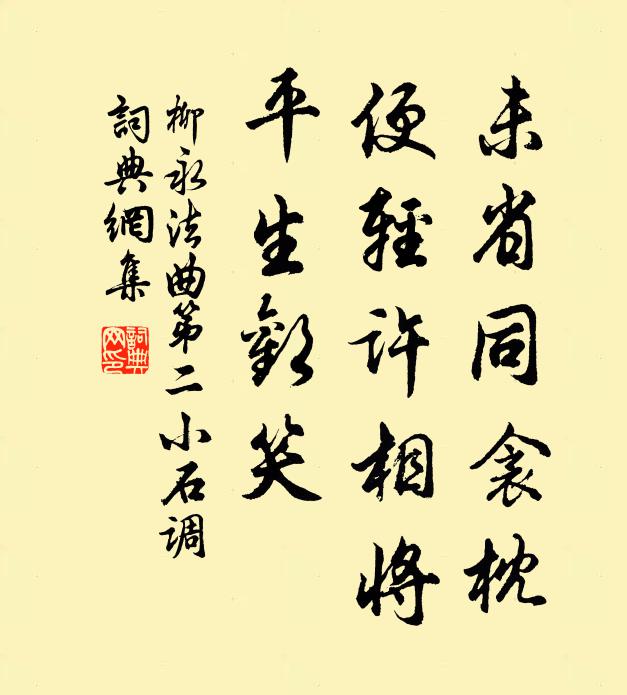 未省同衾枕
便輕許相將
平生歡笑
柳永法曲第二小石调
詞典網集
詞典网印